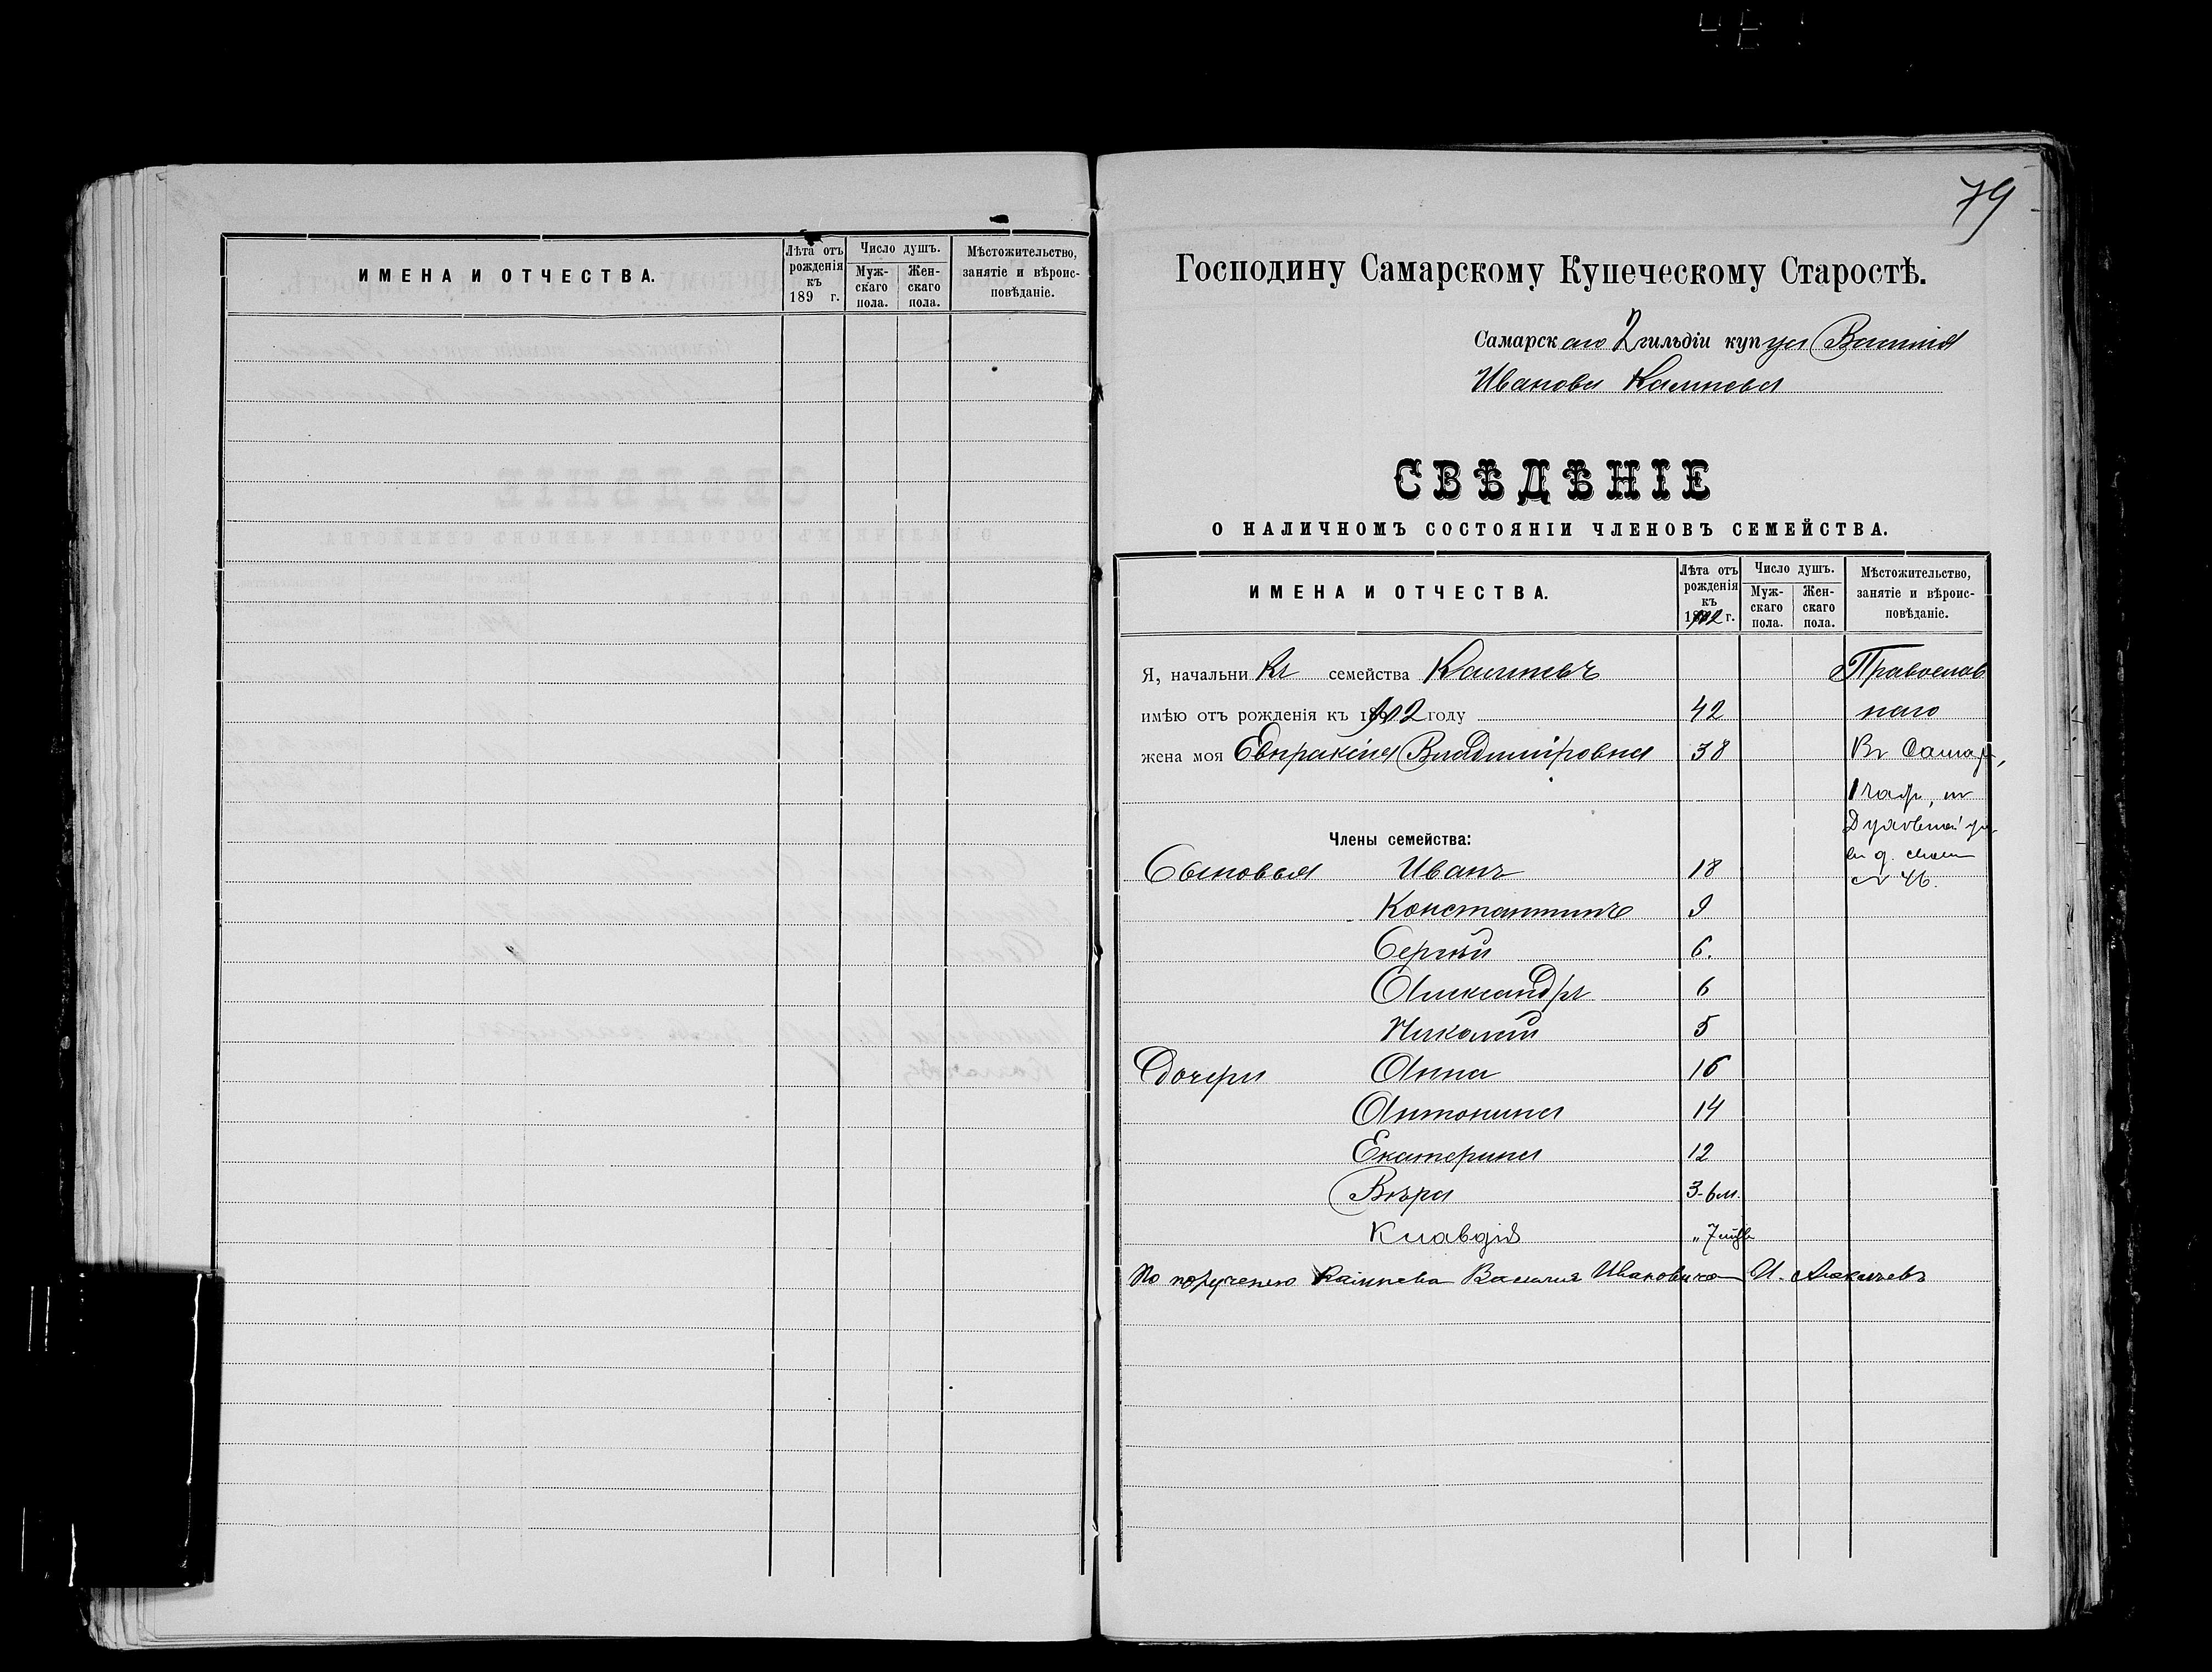 ИМЕНА И ОТЧЕСТВА.
Лѣта отъ рожденія къ 189 г.
Число душъ.
Муж-скаго пола.
Жен-скаго пола.
Мѣстожительство, занятіе и вѣроис-повѣданіе.
79
Господину Самарскому Купеческому Старостѣ.
Самарскаго 2 гильдіи купца Василія
Иванова
СВѢДѢНІЕ
О НАЛИЧНОМЪ СОСТОЯНІИ ЧЛЕНОВЪ СЕМЕЙСТВА.
ИМЕНА И ОТЧЕСТВА.
Лѣта отъ рожденія къ 1902 г.
Число душъ.
Муж-скаго пола.
Жен-скаго пола.
Мѣстожительство, занятіе и вѣроис-повѣданіе.
Я, начальникъ семейства Православ
имѣю отъ рожденія къ 1902 году 42 наго
жена моя Евпраксія Владиміровна 38 Въ Самар,
1 части, по
Члены семейства:
ул
въ д. своем
Сыновья Иванъ 18 № 46.
Константинъ 9
Сергѣй 6.
Александръ 6
Николай 5
Дочери Анна 16
Антонина 14
Екатерина 12
Вѣра 3-6 м.
Клавдія „ 7 мѣс
По порученію Василия Ивановича И.